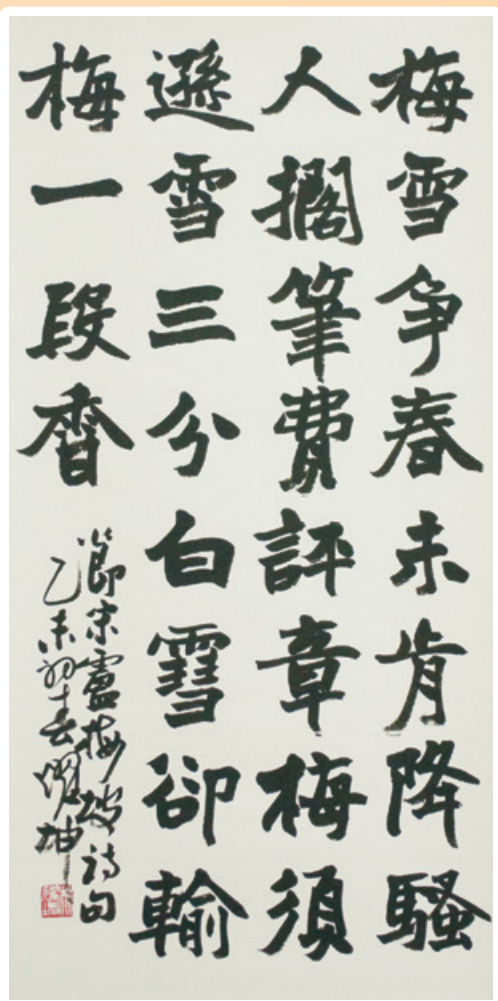 梅雪争春未肯降騷
人擱筆費評章梅須
遜雪三分白雪卻輸
梅一段香
節宋盧梅坡詩句
乙未初春耀坤